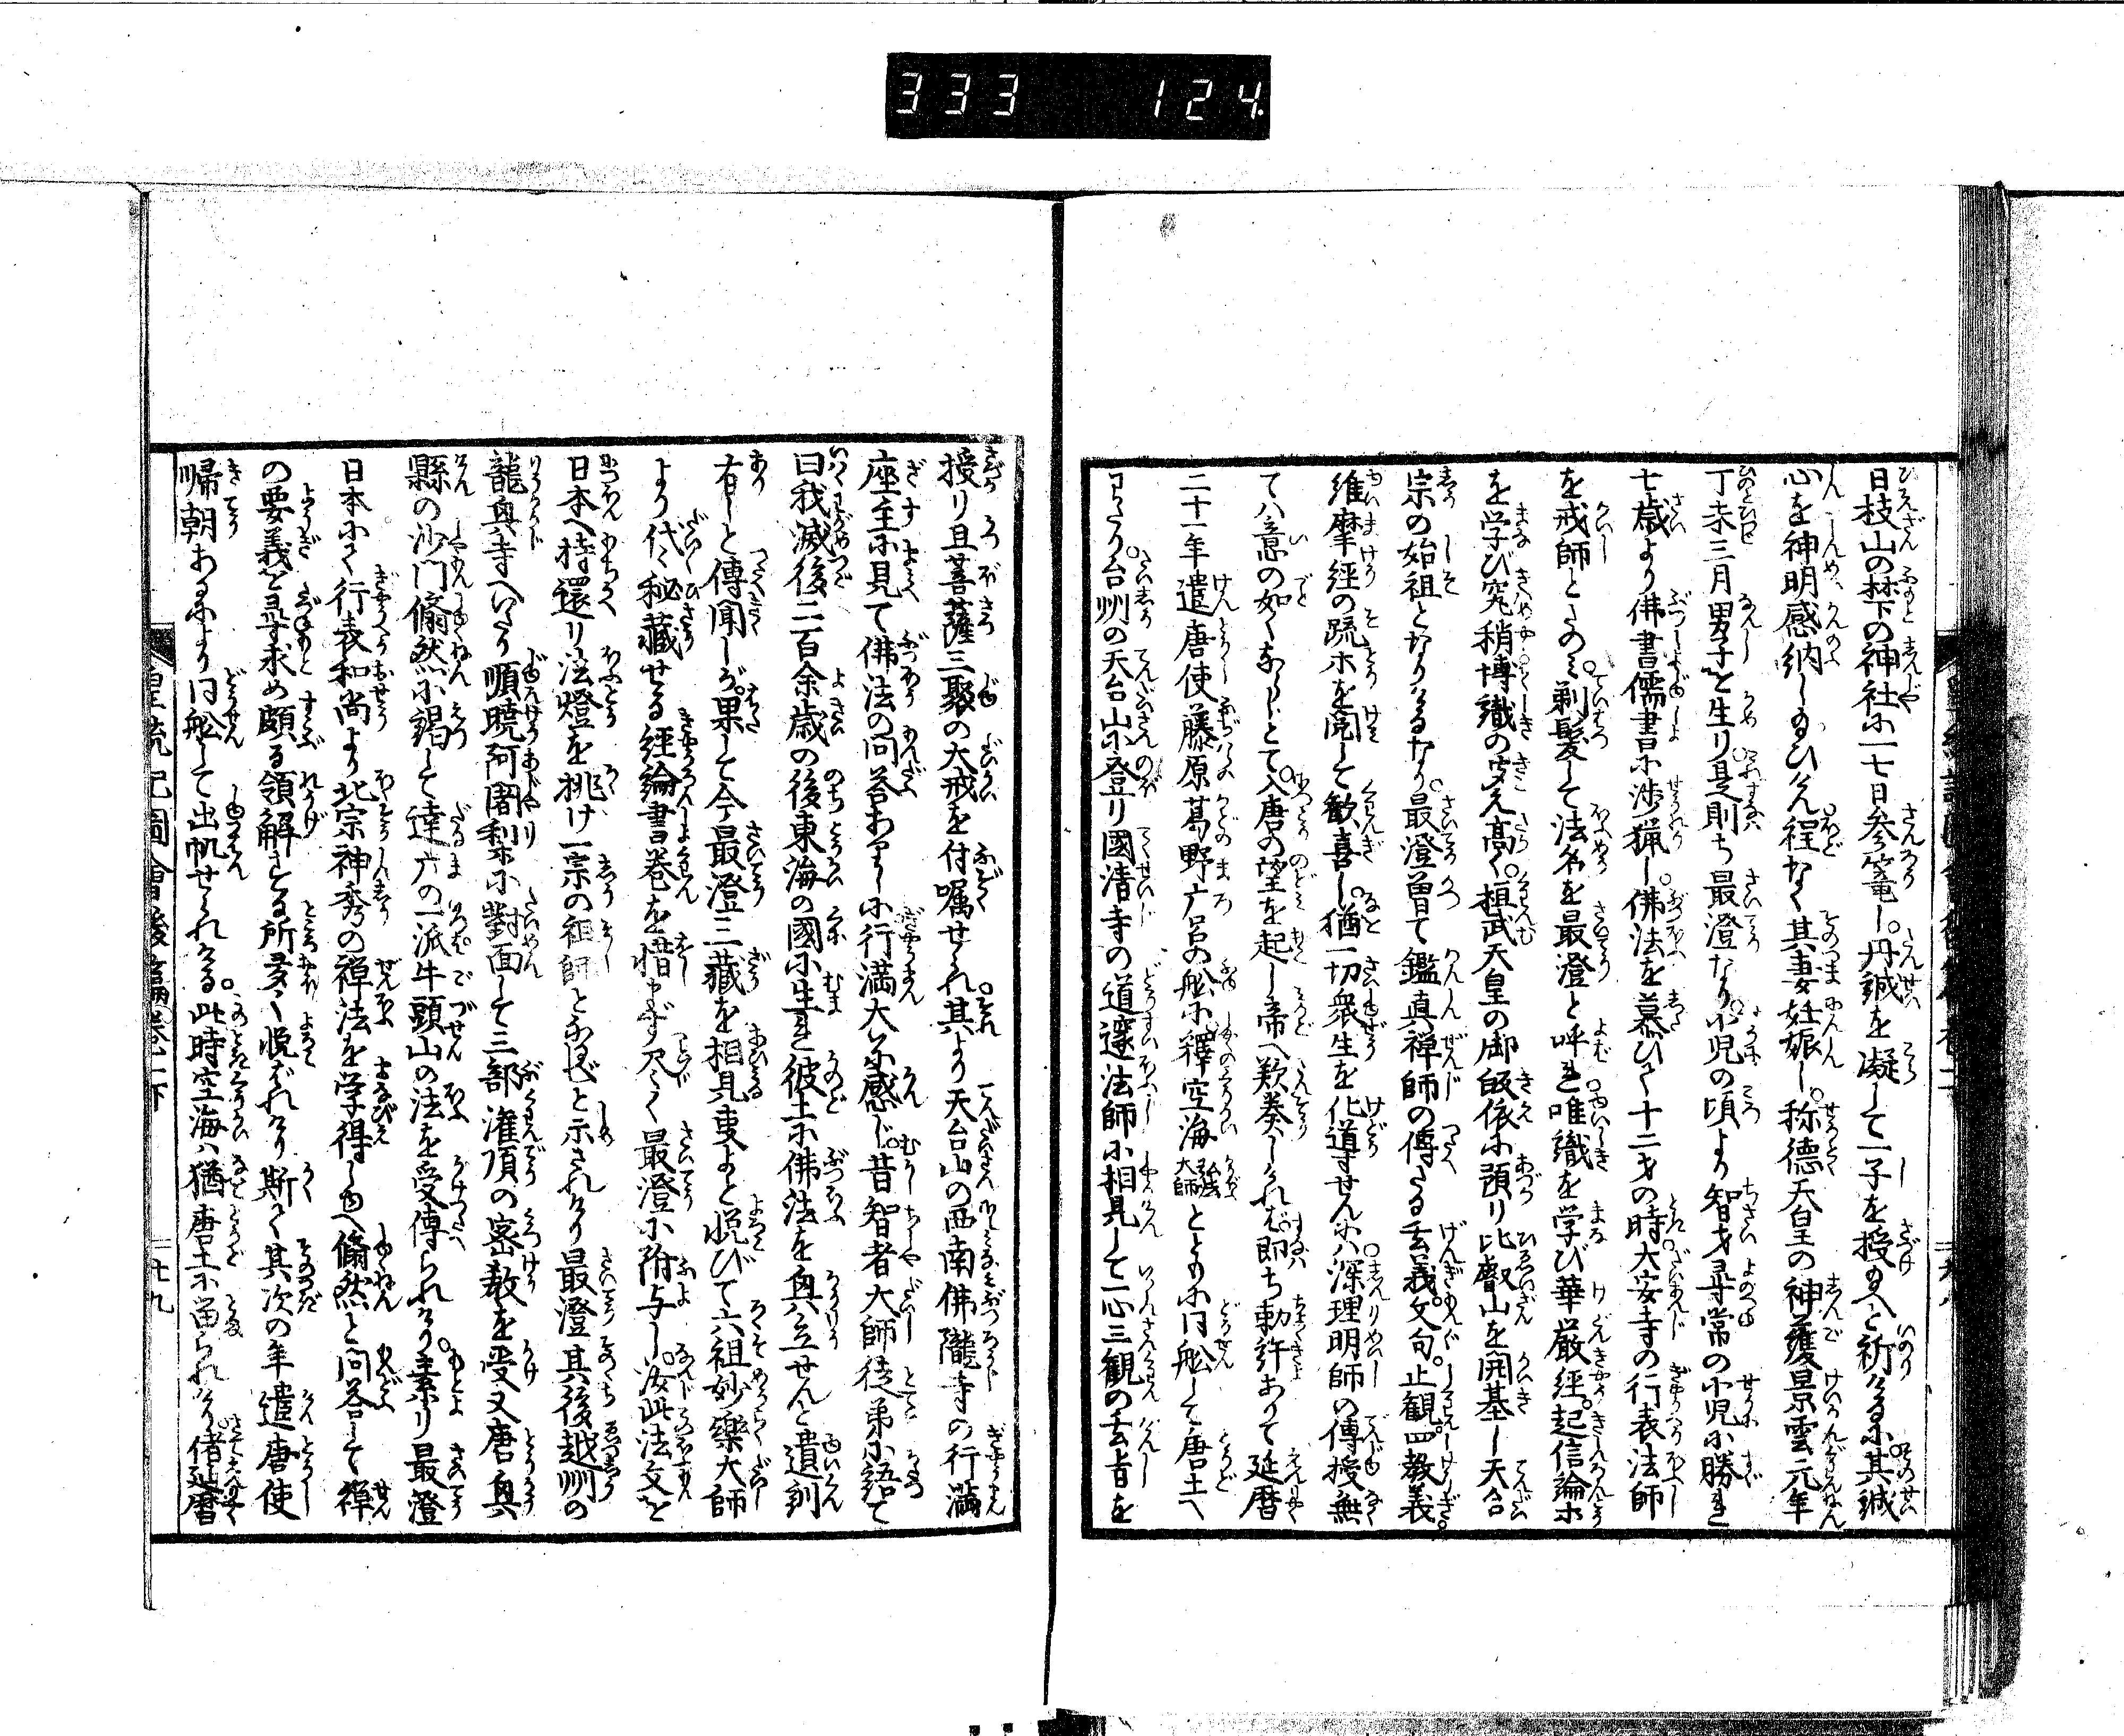 333 124
日枝山の禁下の神社に一七日参篭し。丹誠を凝して一子を授玉へと祈けるに。其誠
心を神明感納し玉ひけん程なく其妻妊娠し。称徳天皇の神護景雲元年
丁未三月男子を生り是則ち最澄なり。小児の頃より智才尋常の小児に勝れ
七歳より佛書儒書に渉猟し。佛法を慕ひて十二才の時大安寺の行表法師
を戒師とたのみ。剃髪して法名を最澄と呼れ。唯識を学び華厳経。起信論ホ
を学び究稍博識の聞え高く。桓武天皇の御皈依に預り比叡山を開基し天台
宗の始祖となりけるなり。最澄曽て鑑真禅師の傳たる玄義。文句。止観。四教義。
維摩経の疏ホを閲して歓喜し。猶一切衆生を化導せんにハ。深理明師の傳授無
てハ意の如くならじとて。入唐の望を起し帝へ歎奏しけれバ。即ち勅許ありて延暦
二十一年遣唐使藤原葛野广呂の舩に。釋空海弘法大師とともに同舩して唐土へ
わたり。台州の天台山に登り國清寺の道邃法師に相見して一心三観の玄旨を
授リ且菩薩三聚の大戒を付嘱せられ。其より天台山の西南佛隴寺の行満
座主に見て佛法の問答ありしに行満大に感じ。昔智者大師徒弟に語て
曰我滅後二百余歳の後東海の國に生れ彼土に佛法を興立せんと遺判
有しと傳聞しが。果して今最澄三藏を相見事よと悦びて六祖妙樂大師
より代〻秘藏せる経論書巻を惜まず尽く最澄に附与し。汝此法文を
日本へ持還リ法燈を挑け一宗の祖師となるべしと示されけり最澄其後越州の
龍興寺へいたり順暁阿闍梨に對面して三部潅頂の密教を受又唐興
縣の沙門翛然に謁して達广の一派牛頭山の法を受傳られけり。素リ最澄
日本にて行表和尚より北宗神秀の禅法を学得し由へ翛然と問答して禅
の要義を尋求め頗る領解する所多く悦ばれけり斯て其次の年遣唐使
帰朝あるにより同舩して出帆せられける。此時空海ハ猶唐土に留られけり。偖延暦
皇統記圖會後篇巻二下
二廿九